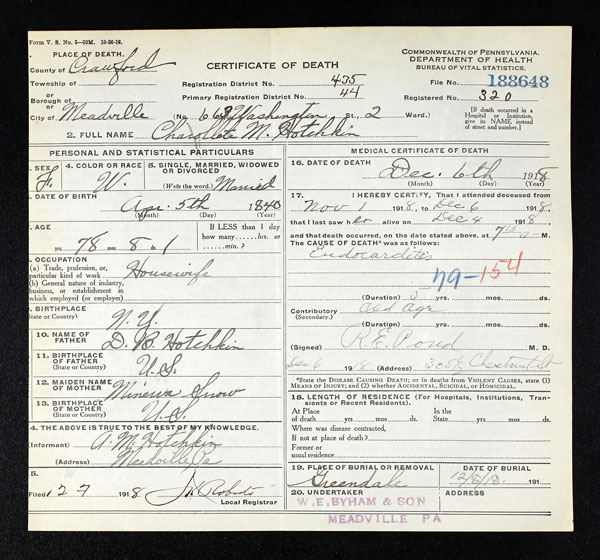 Form V. S. No. 5—50M. 10-26-16.
PLACE OF DEATH.
County of Crawford
Township of
or
Borough of
or
City of Meadville (No. Washington St. 2 Ward.)
CERTIFICATE OF DEATH
Registration District No. 435
Primary Registration District No. 44
COMMONWEALTH OF PENNSYLVANIA.
DEPARTMENT OF HEALTH
BUREAU OF VITAL STATISTICS.
File No. 188648
Registered No. 320
[If death occurred in a
Hospital or Institution,
give its NAME instead
of street and number.]
2. FULL NAME Charollote M. Hotchkin
PERSONAL AND STATISTICAL PARTICULARS
SEX F.
4. COLOR OR RACE W.
5. SINGLE, MARRIED, WIDOWED
OR DIVORCED
(Write the word.) Married
DATE OF BIRTH Apr. 5th 1840
(Month) (Day) (Year)
AGE
78 yrs. 8 m. 1
If LESS than 1 day
how many......hrs. or
......min.?
OCCUPATION
(a) Trade, profession, or
particular kind of work Housewife
(b) General nature of industry,
business, or establishment in
which employed (or employer)
9. BIRTHPLACE
(State or Country) N.Y.
10. NAME OF
FATHER D. B. Hotchkin
11. BIRTHPLACE
OF FATHER
(State or Country) U.S.
12. MAIDEN NAME
OF MOTHER Minerva Snow
13. BIRTHPLACE
OF MOTHER
(State or Country) U.S.
4. THE ABOVE IS TRUE TO THE BEST OF MY KNOWLEDGE.
(Informant) A. M. Hotchkin
(Address) Meadville Pa
5.
Filed 12 7 1918 Roberts
Local Registrar
MEDICAL CERTIFICATE OF DEATH
16. DATE OF DEATH
Dec. 6th 1918
(Month) (Day) (Year)
17. I HEREBY CERTIFY, That I attended deceased from
Nov 1 1918, to Dec 6 1918,
that I last saw her alive on Dec 4 1918
and that death occurred, on the date stated above, at M.
The CAUSE OF DEATH* was as follows:
Endocarditis
79-154
(Duration) 3 yrs. mos. ds.
Contributory Old Age
(Secondary.)
(Duration) yrs. mos. ds.
(Signed) R. E. M. D.
Dec 6 1918 (Address) Chestnut St
*State the DISEASE CAUSING DEATH; or in deaths from VIOLENT CAUSES, state (1)
MEANS OF INJURY; and (2) whether ACCIDENTAL, SUICIDAL, or HOMICIDAL.
18. LENGTH OF RESIDENCE (For Hospitals, Institutions, Transients or Recent Residents).
At Place
of death yrs. mos. ds.
In the
State yrs. mos. ds.
Where was disease contracted,
If not at place of death?
Former or
usual residence
19. PLACE OF BURIAL OR REMOVAL
Greendale
DATE OF BURIAL
12/8/18. 191
20. UNDERTAKER
W. E. BYHAM & SON
MEADVILLE PA
ADDRESS